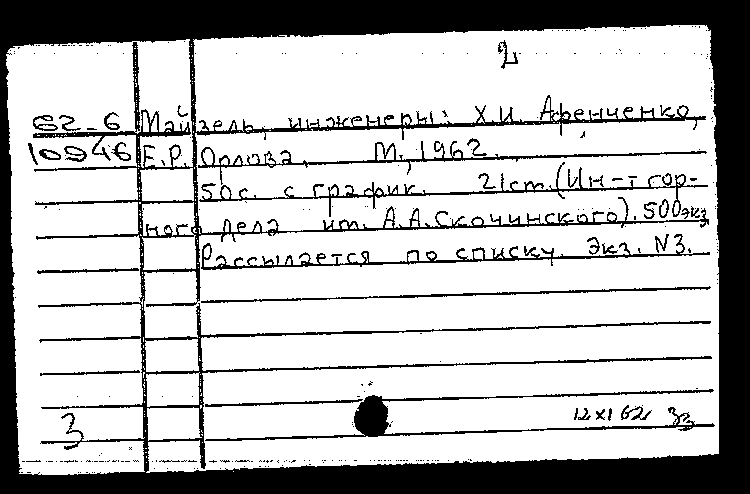 2
62-6 Майзель, инженеры: Х.И. Афенченко,
10946 Е.Р. Орлова. М., 1962.
50с. с график. 21ст. (Ин-т гор-
ного дела им. А.А.Скочинского). 500экз
Рассылается по списку. Экз. N3.
3 12 XI 62